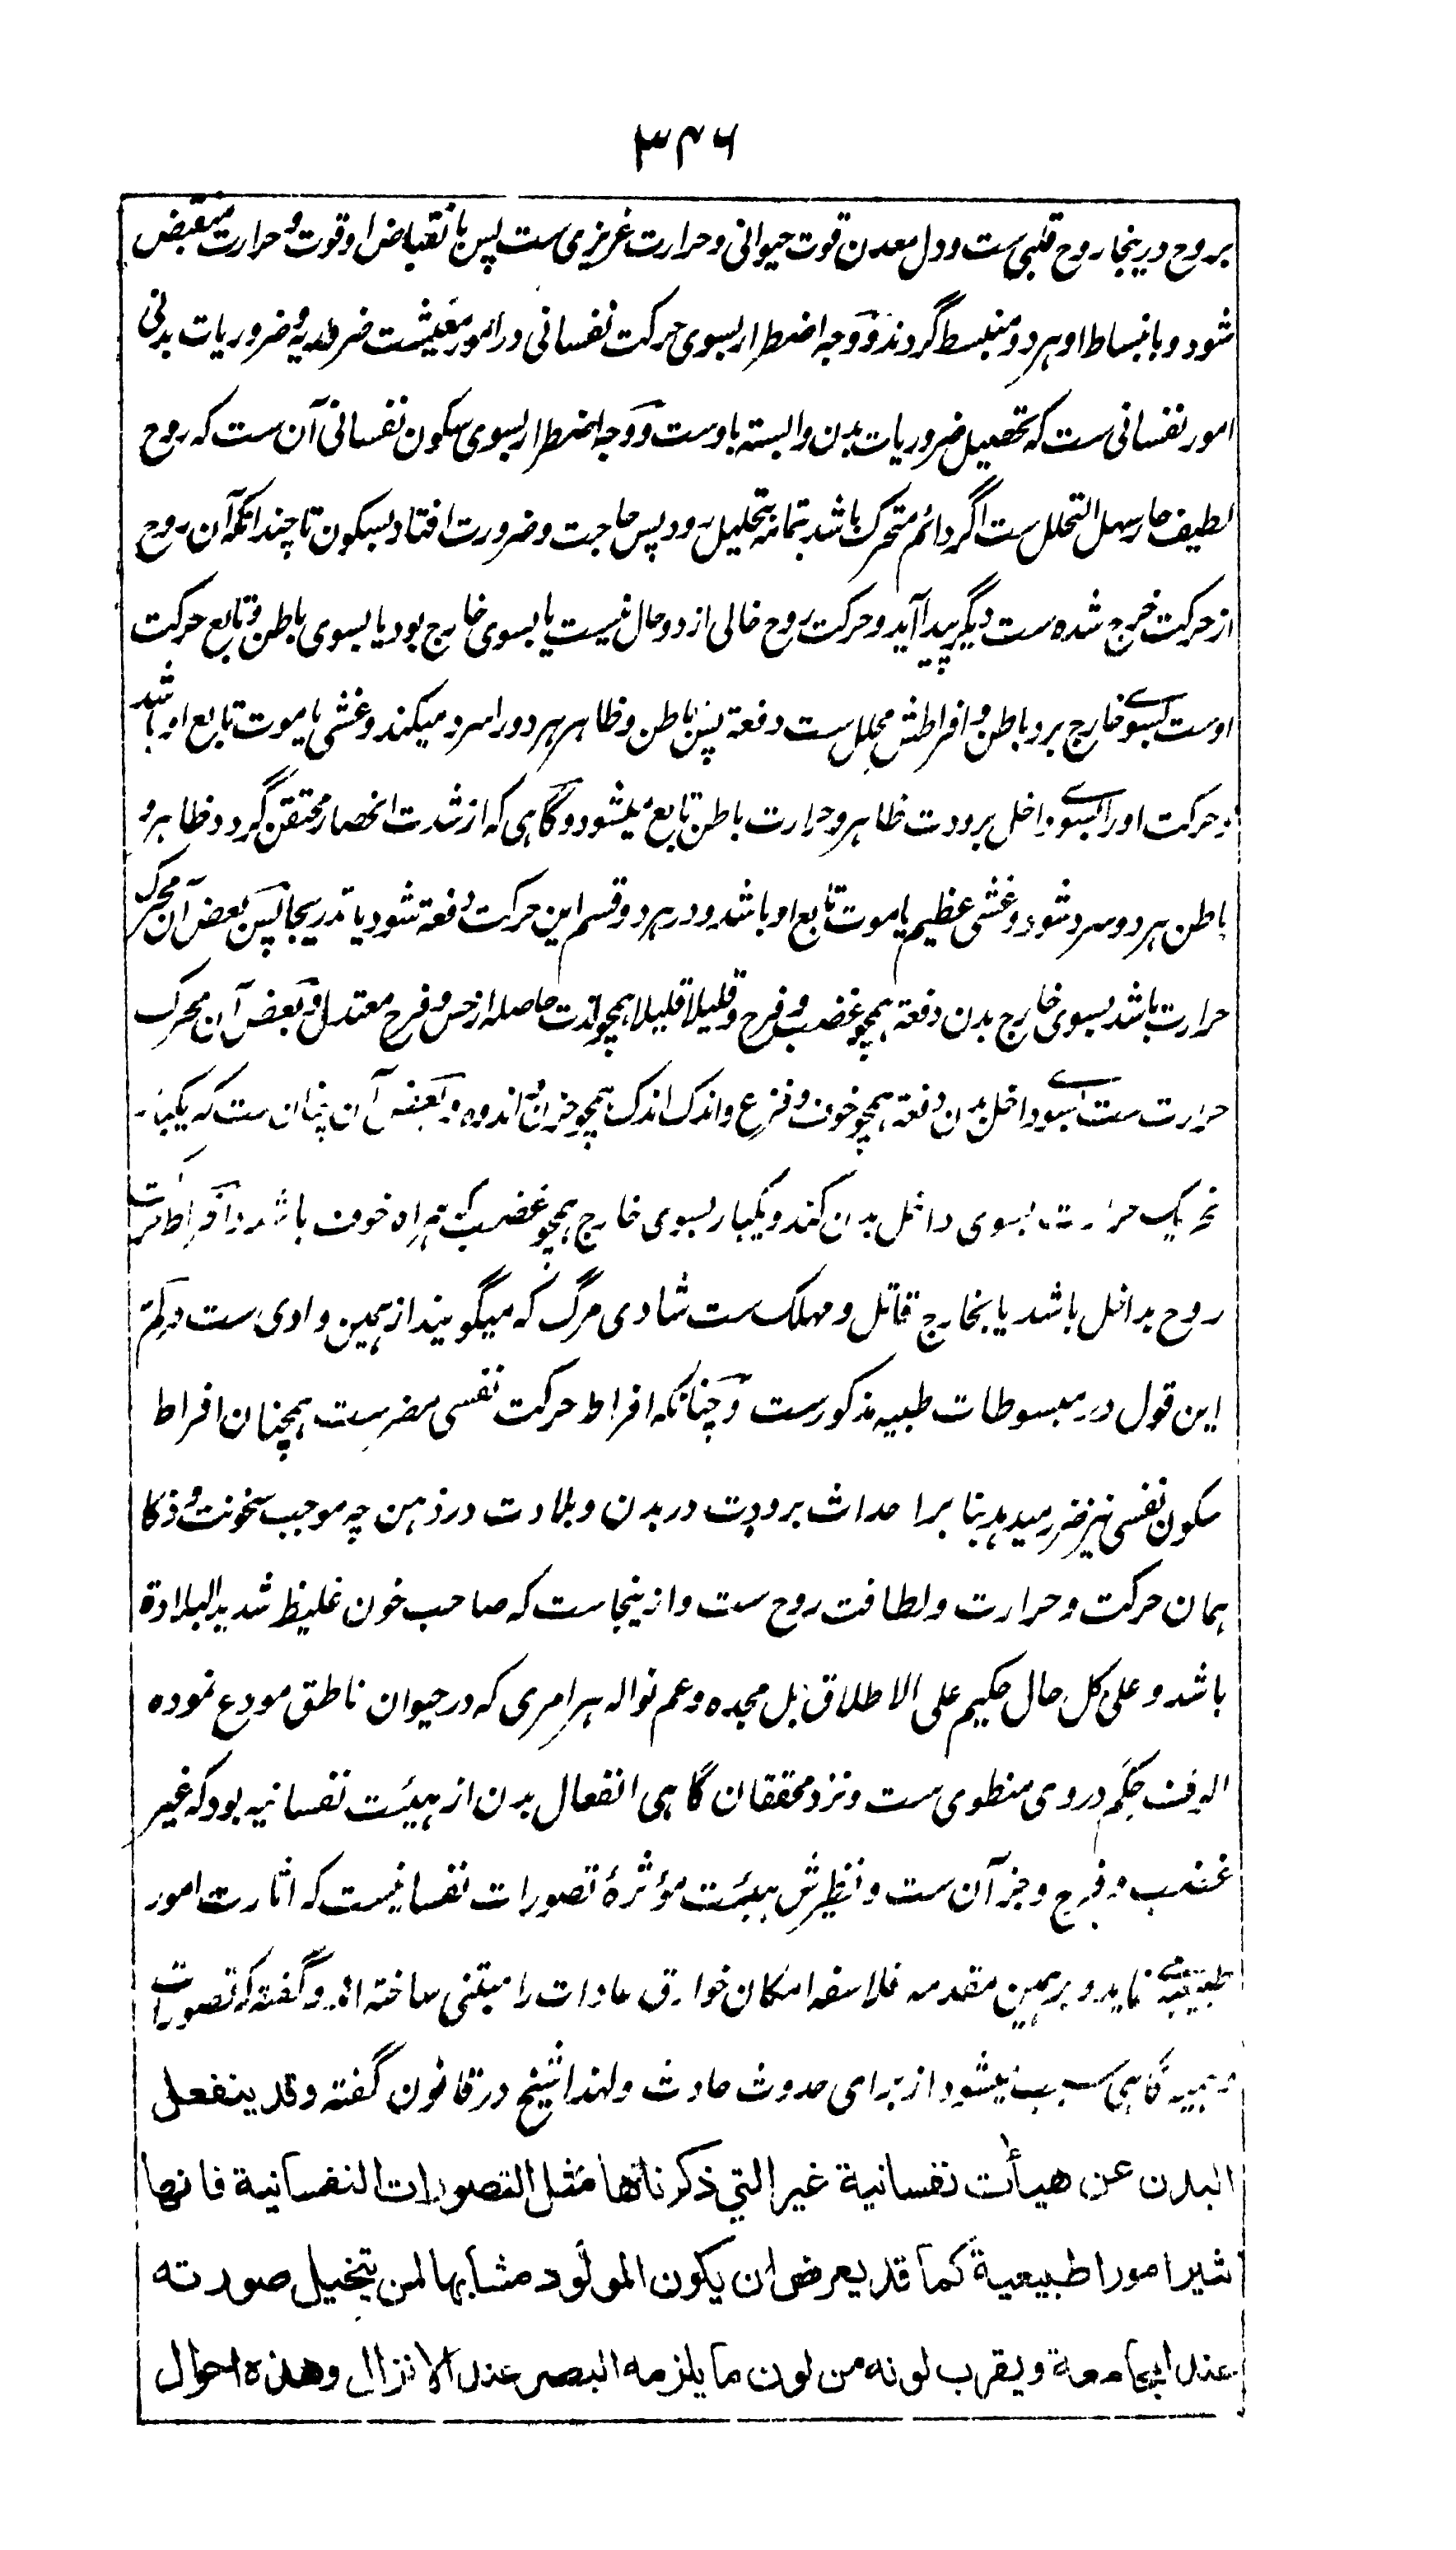 ۳۴۶
بروح درینجا روح قلبی ست و دل معدن قوت حیوانی و حرارت غریزی ست پس بانقباض او قوت و حرارت منقبض
شود و بانبساط او هر دو منبسط گردند و وجه اضطرار بسوی حرکت نفسانی در امور معیشت ضروریه و ضروریات بدنی
امور نفسانی ست که تحصیل ضروریات بدن وابسته باوست و وجه اضطرار بسوی سکون نفسانی آن ست که روح
لطیف حار سهل التحلل ست اگر دائم متحرک باشد بتمامه بتحلیل رود پس حاجت و ضرورت افتاد بسکون تا چندانکه آن روح
از حرکت خرج شده ست دیگر پیدا آید و حرکت روح خالی از دو حال نیست یا بسوی خارج بود یا بسوی باطن و تابع حرکت
اوست بسوے خارج برد باطن و افراطش محلل ست دفعة پس باطن و ظاهر هر دو را سرد میکند و غشی یا موت تابع او باشد
و حرکت او را بسوے داخل برودت ظاهر و حرارت باطن تابع میشود و گاهی که از شدت انحصار محتقن گردد ظاهر و
باطن هر دو سرد شود و غشی عظیم یا موت تابع او باشد و در هر دو قسم این حرکت دفعة شود یا تدریجا پس بعض آن محرک
حرارت باشد بسوی خارج بدن دفعة همچو غضب و فرح و قلیلا قلیلا همچو لذت حاصله از حس و فرح معتدل و بعض آن محرک
حرارت ست بسوے داخل بدن دفعة همچو خوف و فزع و اندک اندک همچو حزن و اندوه و بعضه آن چنان ست که یکبار
تحریک حرارت بسوی داخل بدن کند و یکبار بسوی خارج همچو غضب که همراه خوف باشد و افراط حرکت
روح بداخل باشد یا بخارج قاتل و مهلک ست شادی مرگ که میگویند از همین وادی ست و لم
این قول در مبسوطات طبیه مذکورست و چنانکه افراط حرکت نفسی مضرست همچنان افراط
سکون نفسی نیز ضرر میدهد بنا بر احداث برودت در بدن و بلادت در ذهن چه موجب سخونت و ذکا
همان حرکت و حرارت و لطافت روح ست و ازینجاست که صاحب خون غلیظ شدید البلادة
باشد و علی کل حال حکیم علی الاطلاق جل مجده و عم نواله هر امری که در حیوان ناطق مودع نموده
الوف حکم در وی منطوی ست و نزد محققان گاهی انفعال بدن از هیئت نفسانیه بود که غیر
غضب و فرح و جز آن ست و نظیرش هیئت مؤثرهٔ تصورات نفسانیست که اثارت امور
طبیعیه نماید و بر همین مقدمه فلاسفه امکان خوارق عادات را مبتنی ساخته اند و گفته که تصورات
وهمیه گاهی سبب میشود از برای حدوث حادث و لهذا شیخ در قانون گفته وقد ینفعل
البدن عن هیأت نفسانیة غیر التي ذکرناها مثل التصورات النفسانیة فانها
تثیر امورا طبیعیة کما قد یعرض ان یکون المولود مشابها لمن یتخیل صورته
عند المجامعة ویقرب لونه من لون ما یلزمه البصر عند الانزال وهذه احوال